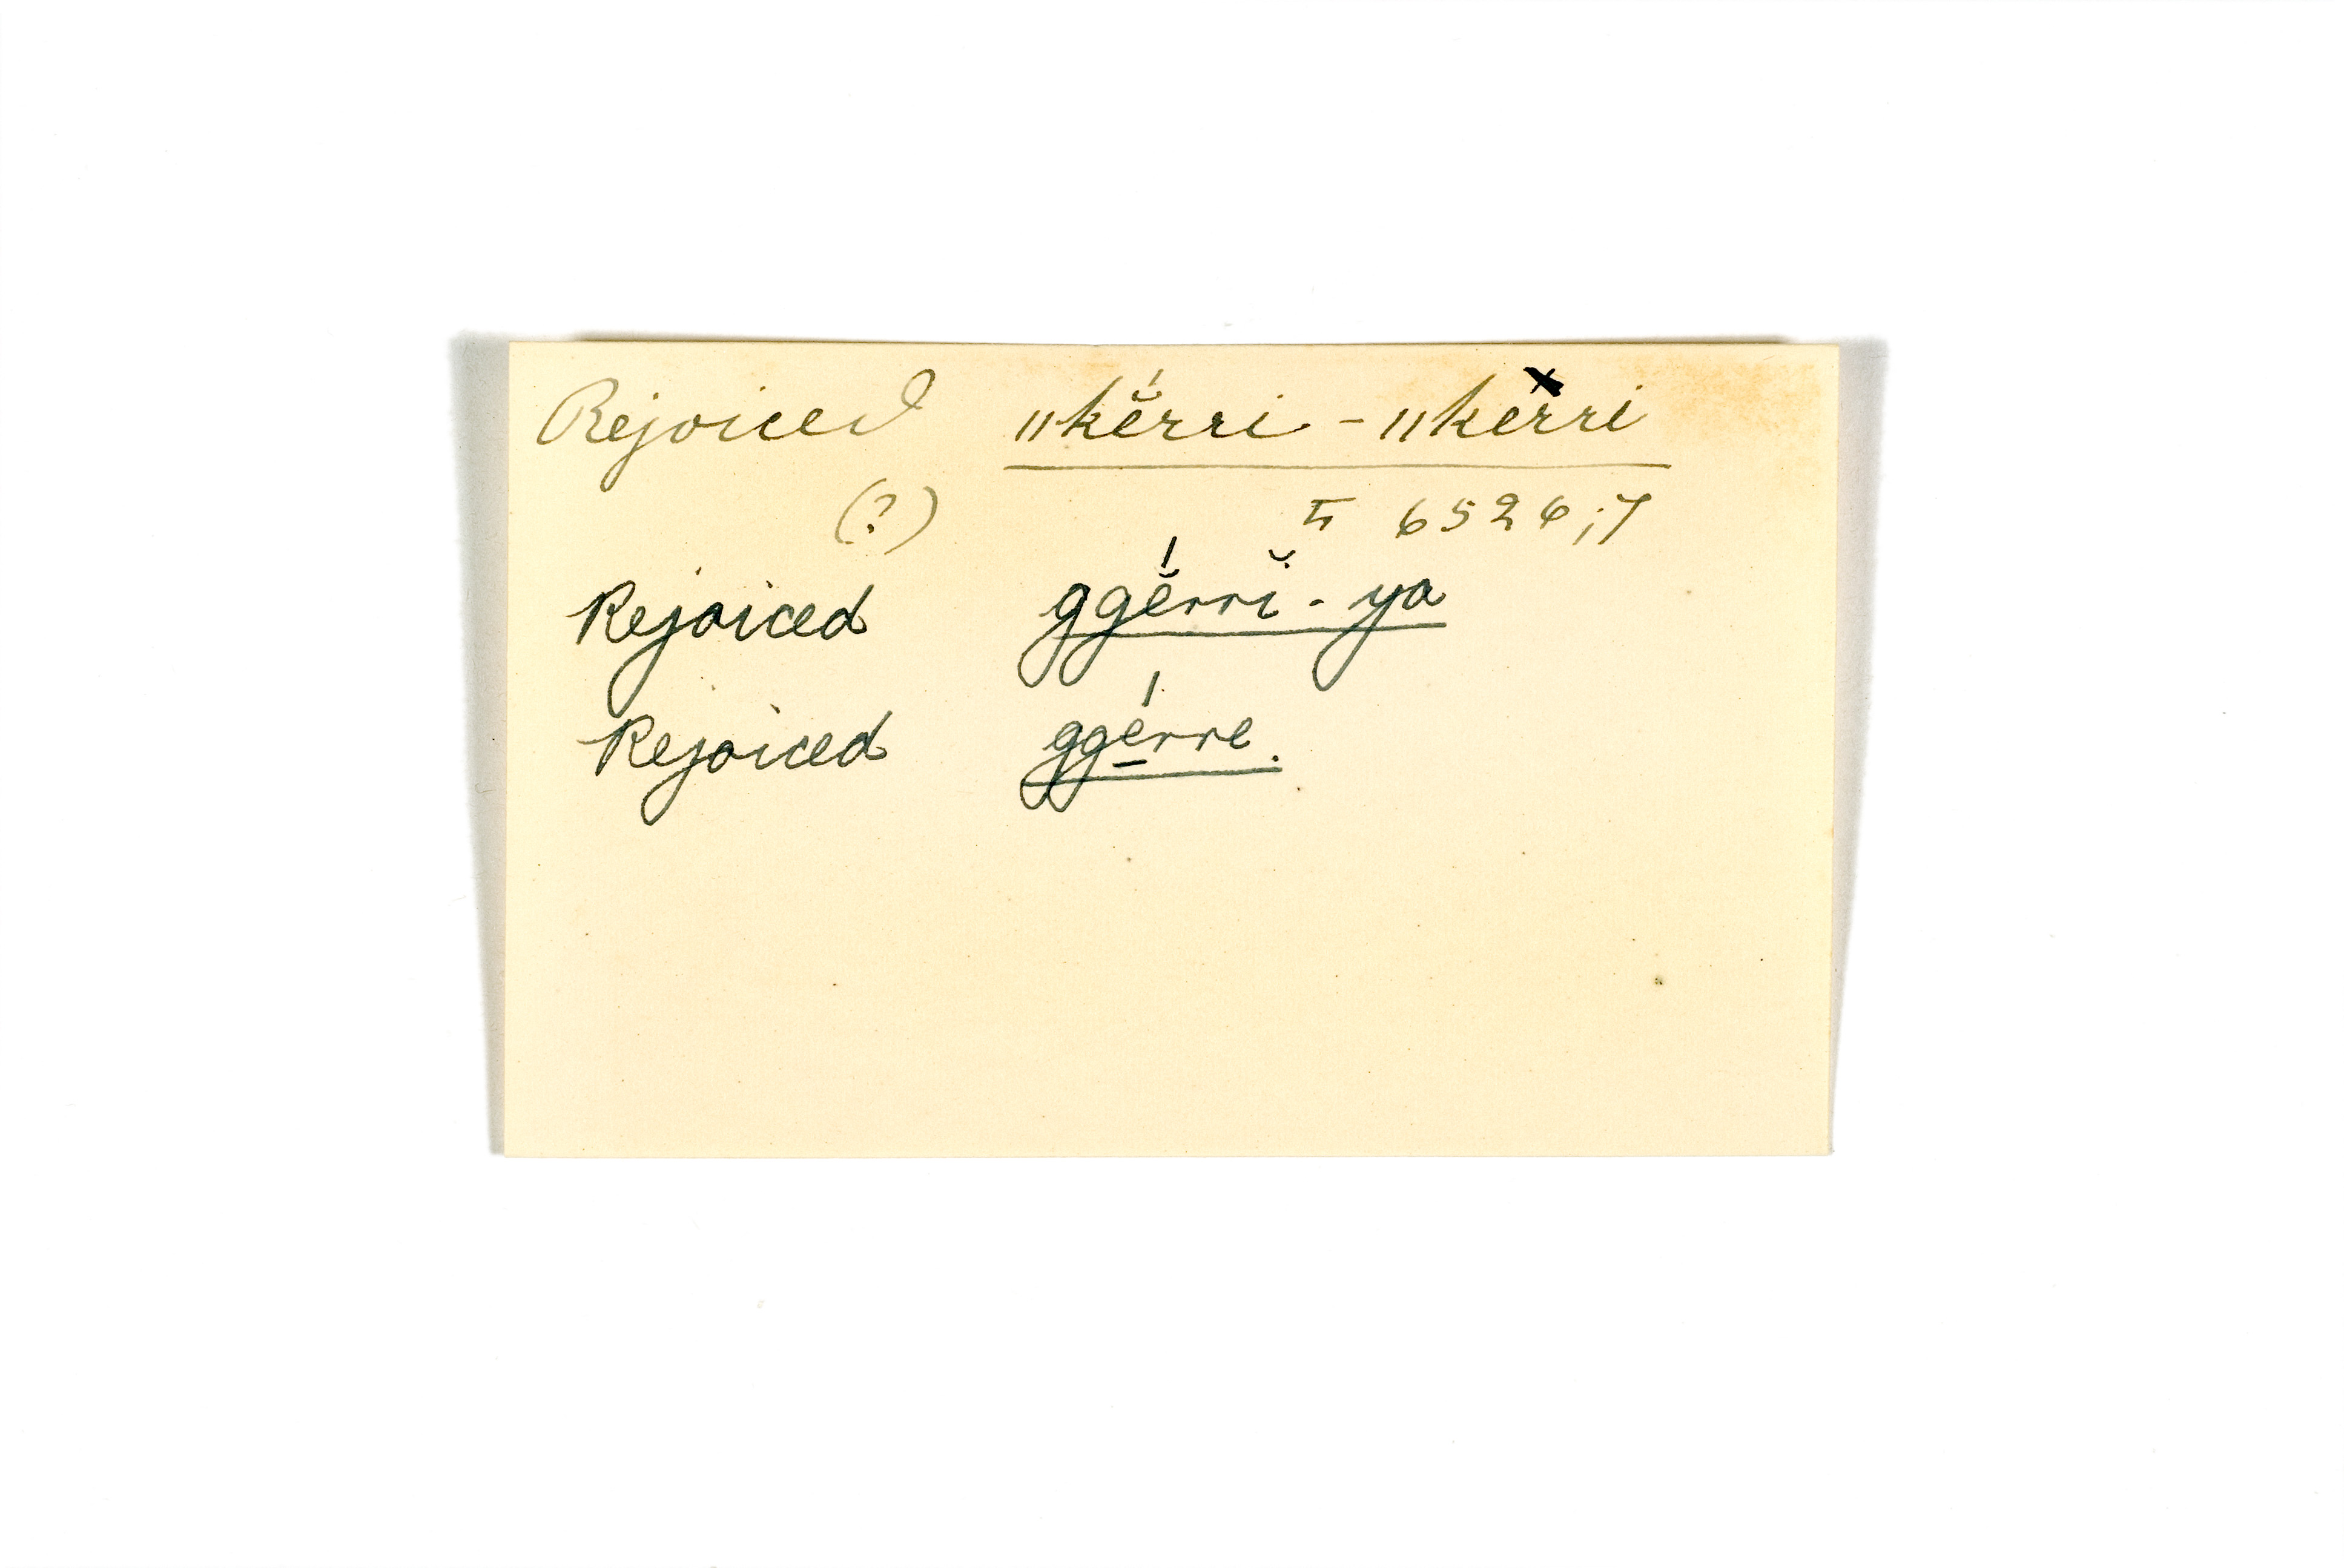 Rejoiced ǁkĕ́rri - ǁkerri
(?) Ⅱ 6526;7
Rejoiced ggĕ́rrĭ - ya
Rejoiced ggé̱rre.